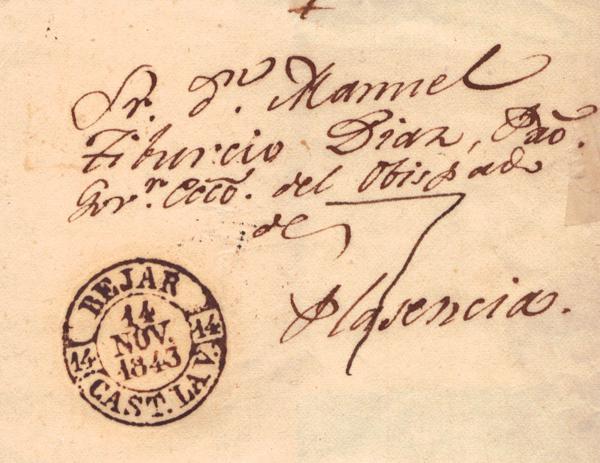 Sr. Dn. Manuel
Tiburcio Diaz, Pbro.
Govr. Ecco. del Obispado
de
Plasencia.
BEJAR
14
NOV.
1843
14
14
CAST. LA V.